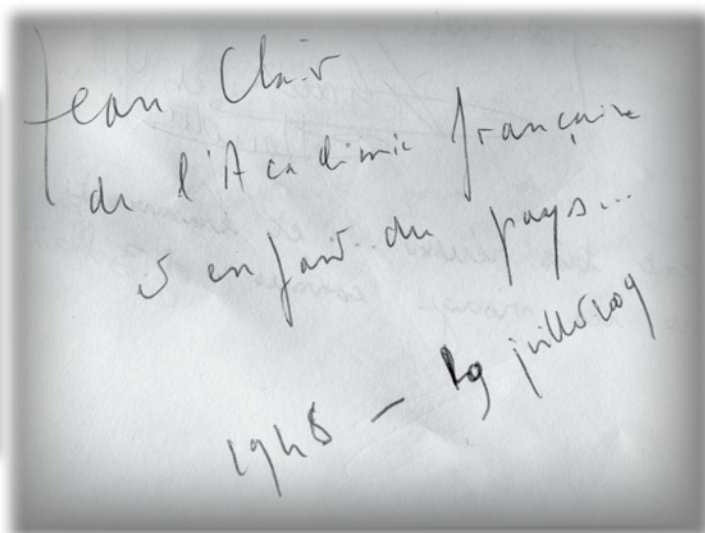 Jean Clair
de l'Académie française
& enfant du pays...
1948 – juillet 2009